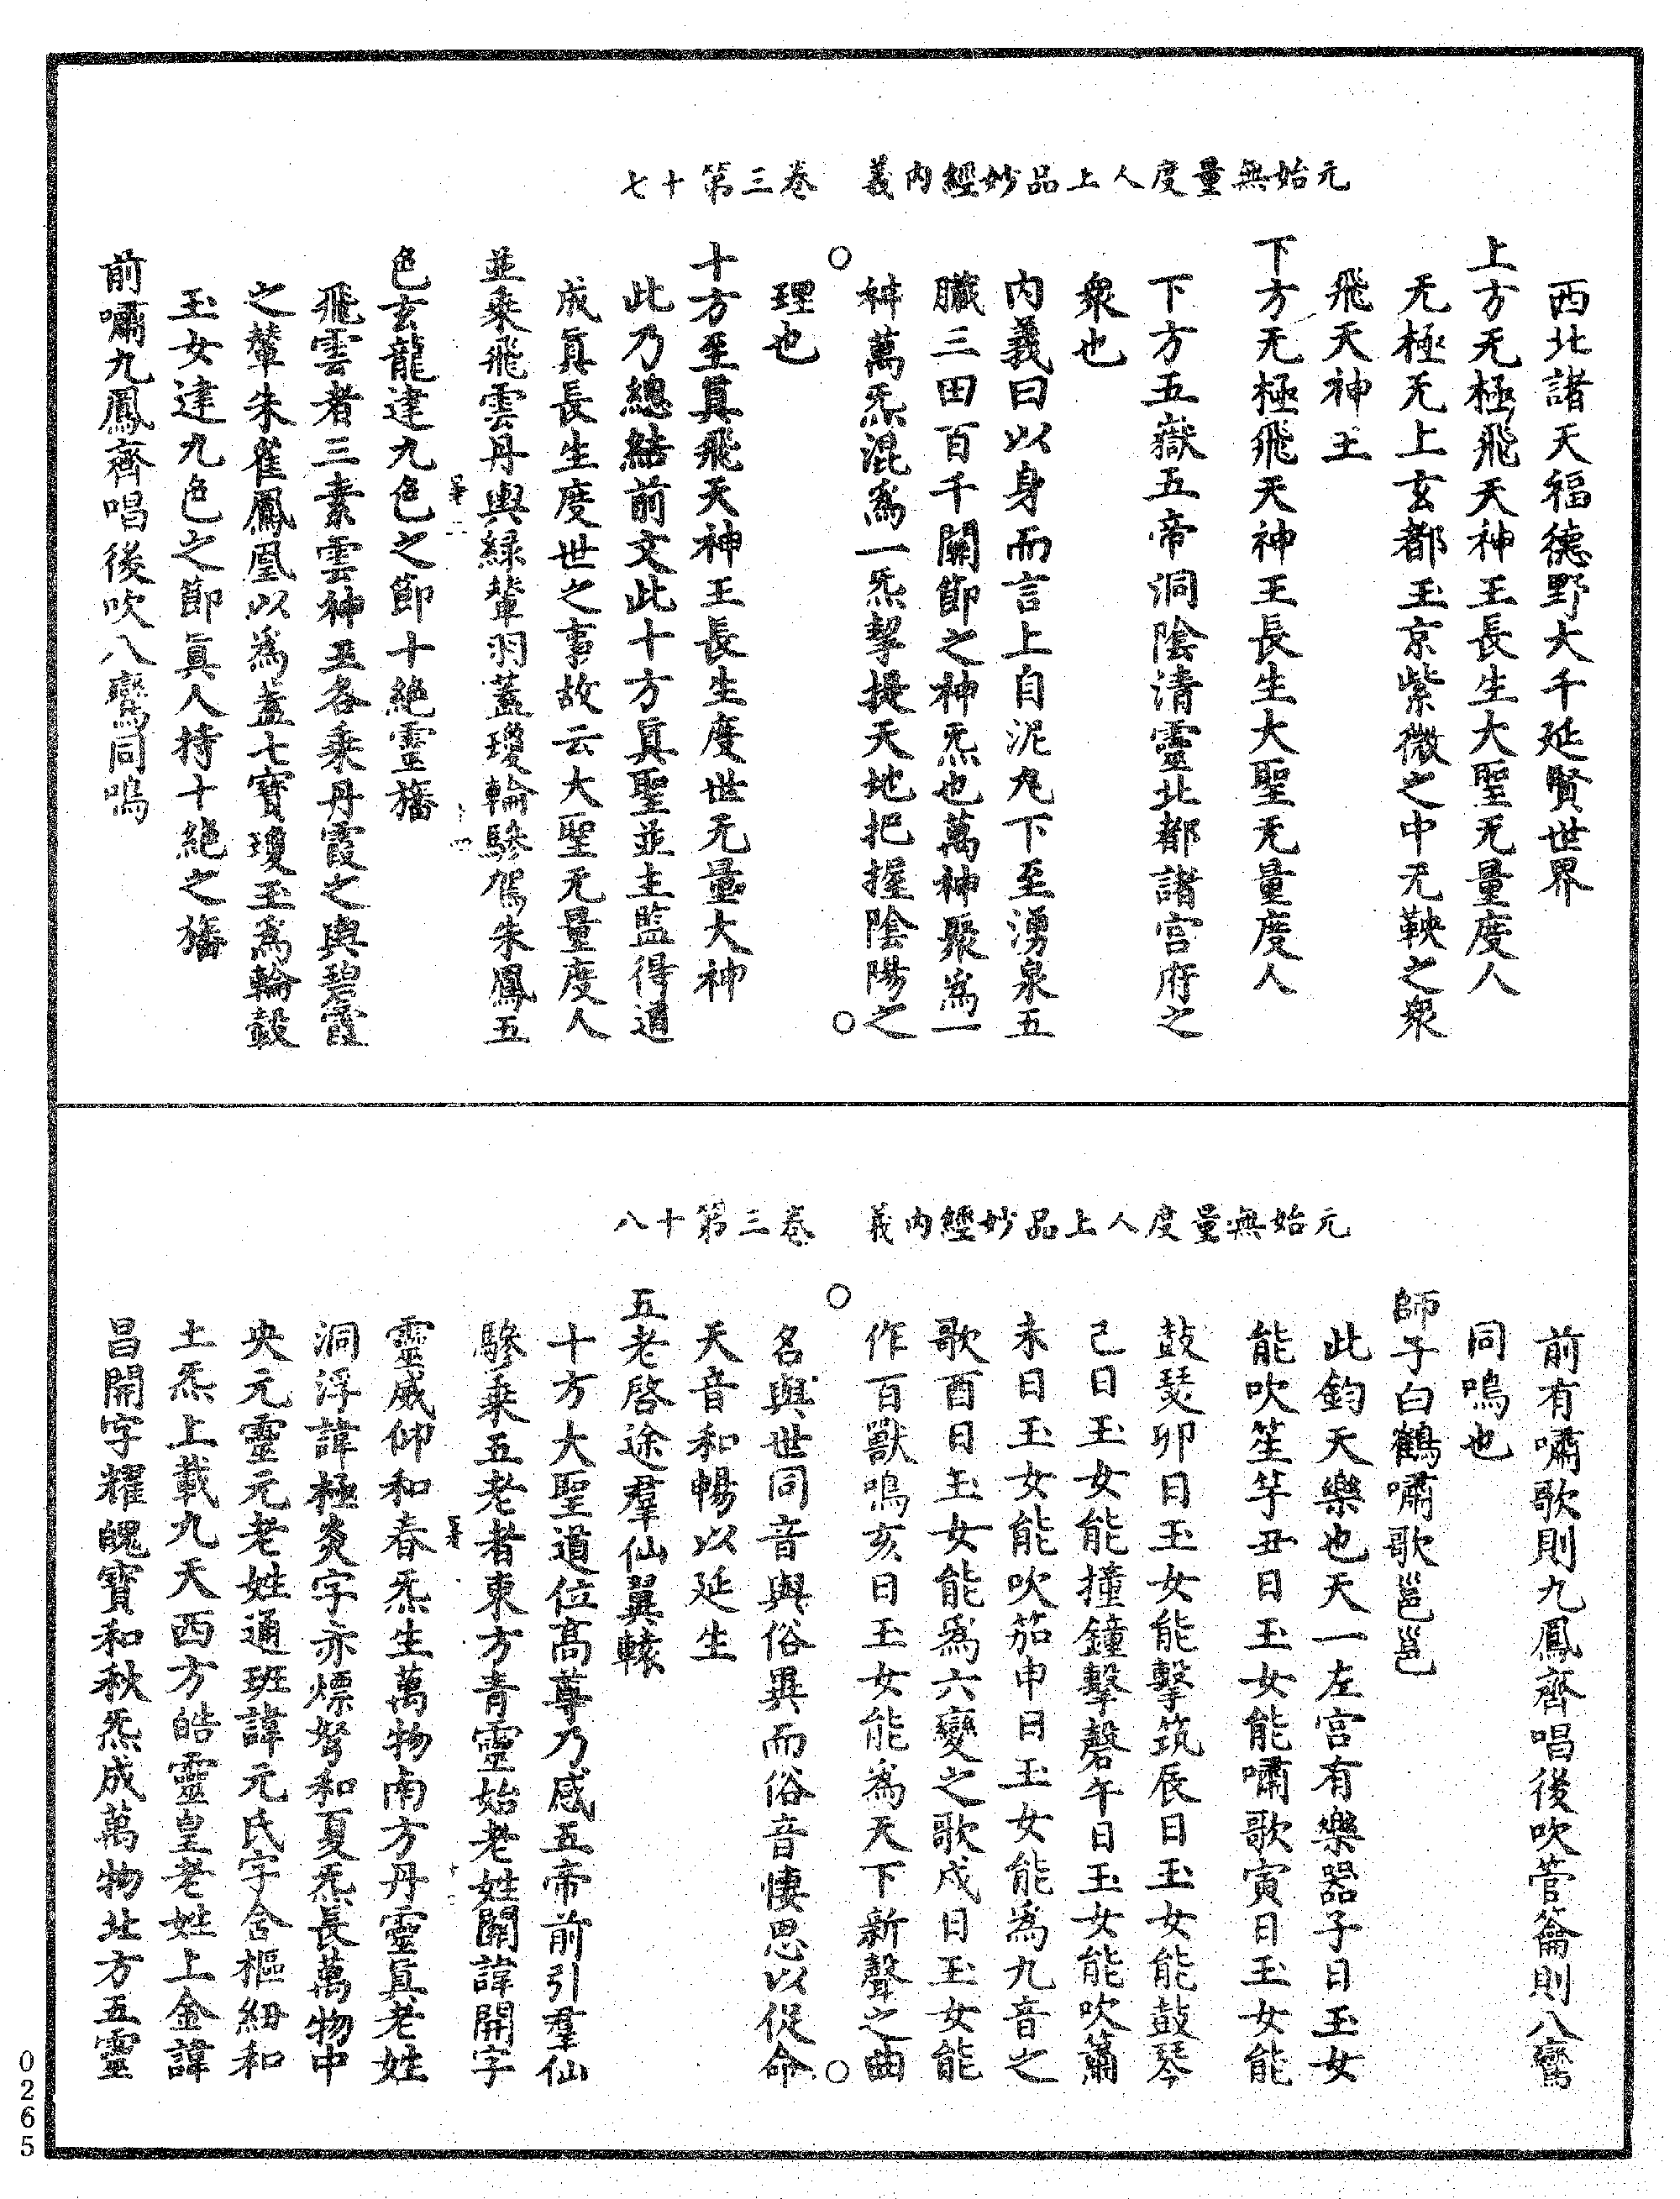 元始無量度人上品妙經內義　卷三第十七
西北諸天福德野大千延賢世界
上方无極飛天神王長生大聖无量度人
无極无上玄都玉京紫微之中无鞅之衆
飛天神王
下方无極飛天神王長生大聖无量度人
下方五嶽五帝洞陰清靈北都諸宮府之
衆也
內義曰以身而言上自泥丸下至湧泉五
臟三田百千關節之神炁也萬神聚爲一
神萬炁混爲一炁挈提天地把握陰陽之
理也
十方至眞飛天神王長生度世无量大神
此乃總結前文此十方眞聖並主監得道
成眞長生度世之事故云大聖无量度人
並乘飛雲丹輿綠輦羽蓋瓊輪驂駕朱鳳五
色玄龍建九色之節十絕靈旛
飛雲者三素雲神王各乘丹霞之輿碧霞
之輦朱雀鳳凰以爲蓋七寶瓊玉爲輪轂
玉女建九色之節眞人持十絕之旛
前嘯九鳳齊唱後吹八鸞同鳴
元始無量度人上品妙經內義　卷三第十八
前有嘯歌則九鳳齊唱後吹管籥則八鸞
同鳴也
師子白鶴嘯歌邕邕
此鈞天樂也天一左宮有樂器子日玉女
能吹笙竽丑日玉女能嘯歌寅日玉女能
鼓瑟卯日玉女能擊筑辰日玉女能鼓琴
己日玉女能撞鐘擊磬午日玉女能吹簫
未日玉女能吹笳申日玉女能爲九音之
歌酉日玉女能爲六變之歌戍日玉女能
作百獸鳴亥日玉女能爲天下新聲之曲
名與世同音與俗異而俗音悽思以促命
天音和暢以延生
五老啓途羣仙翼轅
十方大聖道位高尊乃感五帝前引羣仙
驂乘五老者東方青靈始老姓閞諱開字
靈威仰和春炁生萬物南方丹靈眞老姓
洞浮諱極炎字赤熛弩和夏炁長萬物中
央元靈元老姓通班諱元氏字含樞紐和
土炁上載九天西方皓靈皇老姓上金諱
昌開字耀魄寶和秋炁成萬物北方五靈
0265